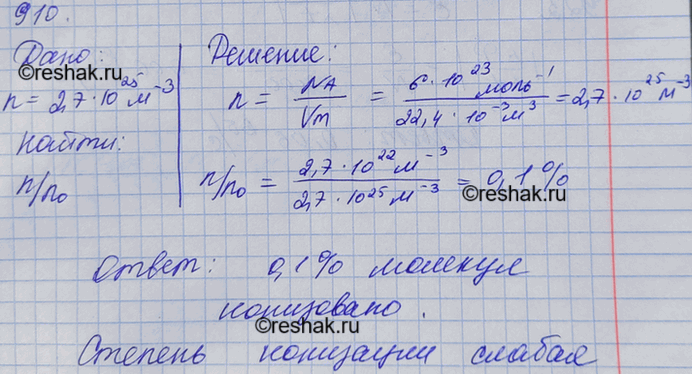 910.
Дано:
n = 2,7·10²⁵ м⁻³
найти:
n/n₀
Решение:
n = NA/Vm = 6·10²³ моль⁻¹/22,4·10⁻³ м³ = 2,7·10²⁵ м⁻³
n/n₀ = 2,7·10²² м⁻³/2,7·10²⁵ м⁻³ = 0,1%
Ответ: 0,1% молекул
ионизовано.
Степень ионизации слабая
©reshak.ru
©reshak.ru
©reshak.ru
©reshak.ru
©reshak.ru